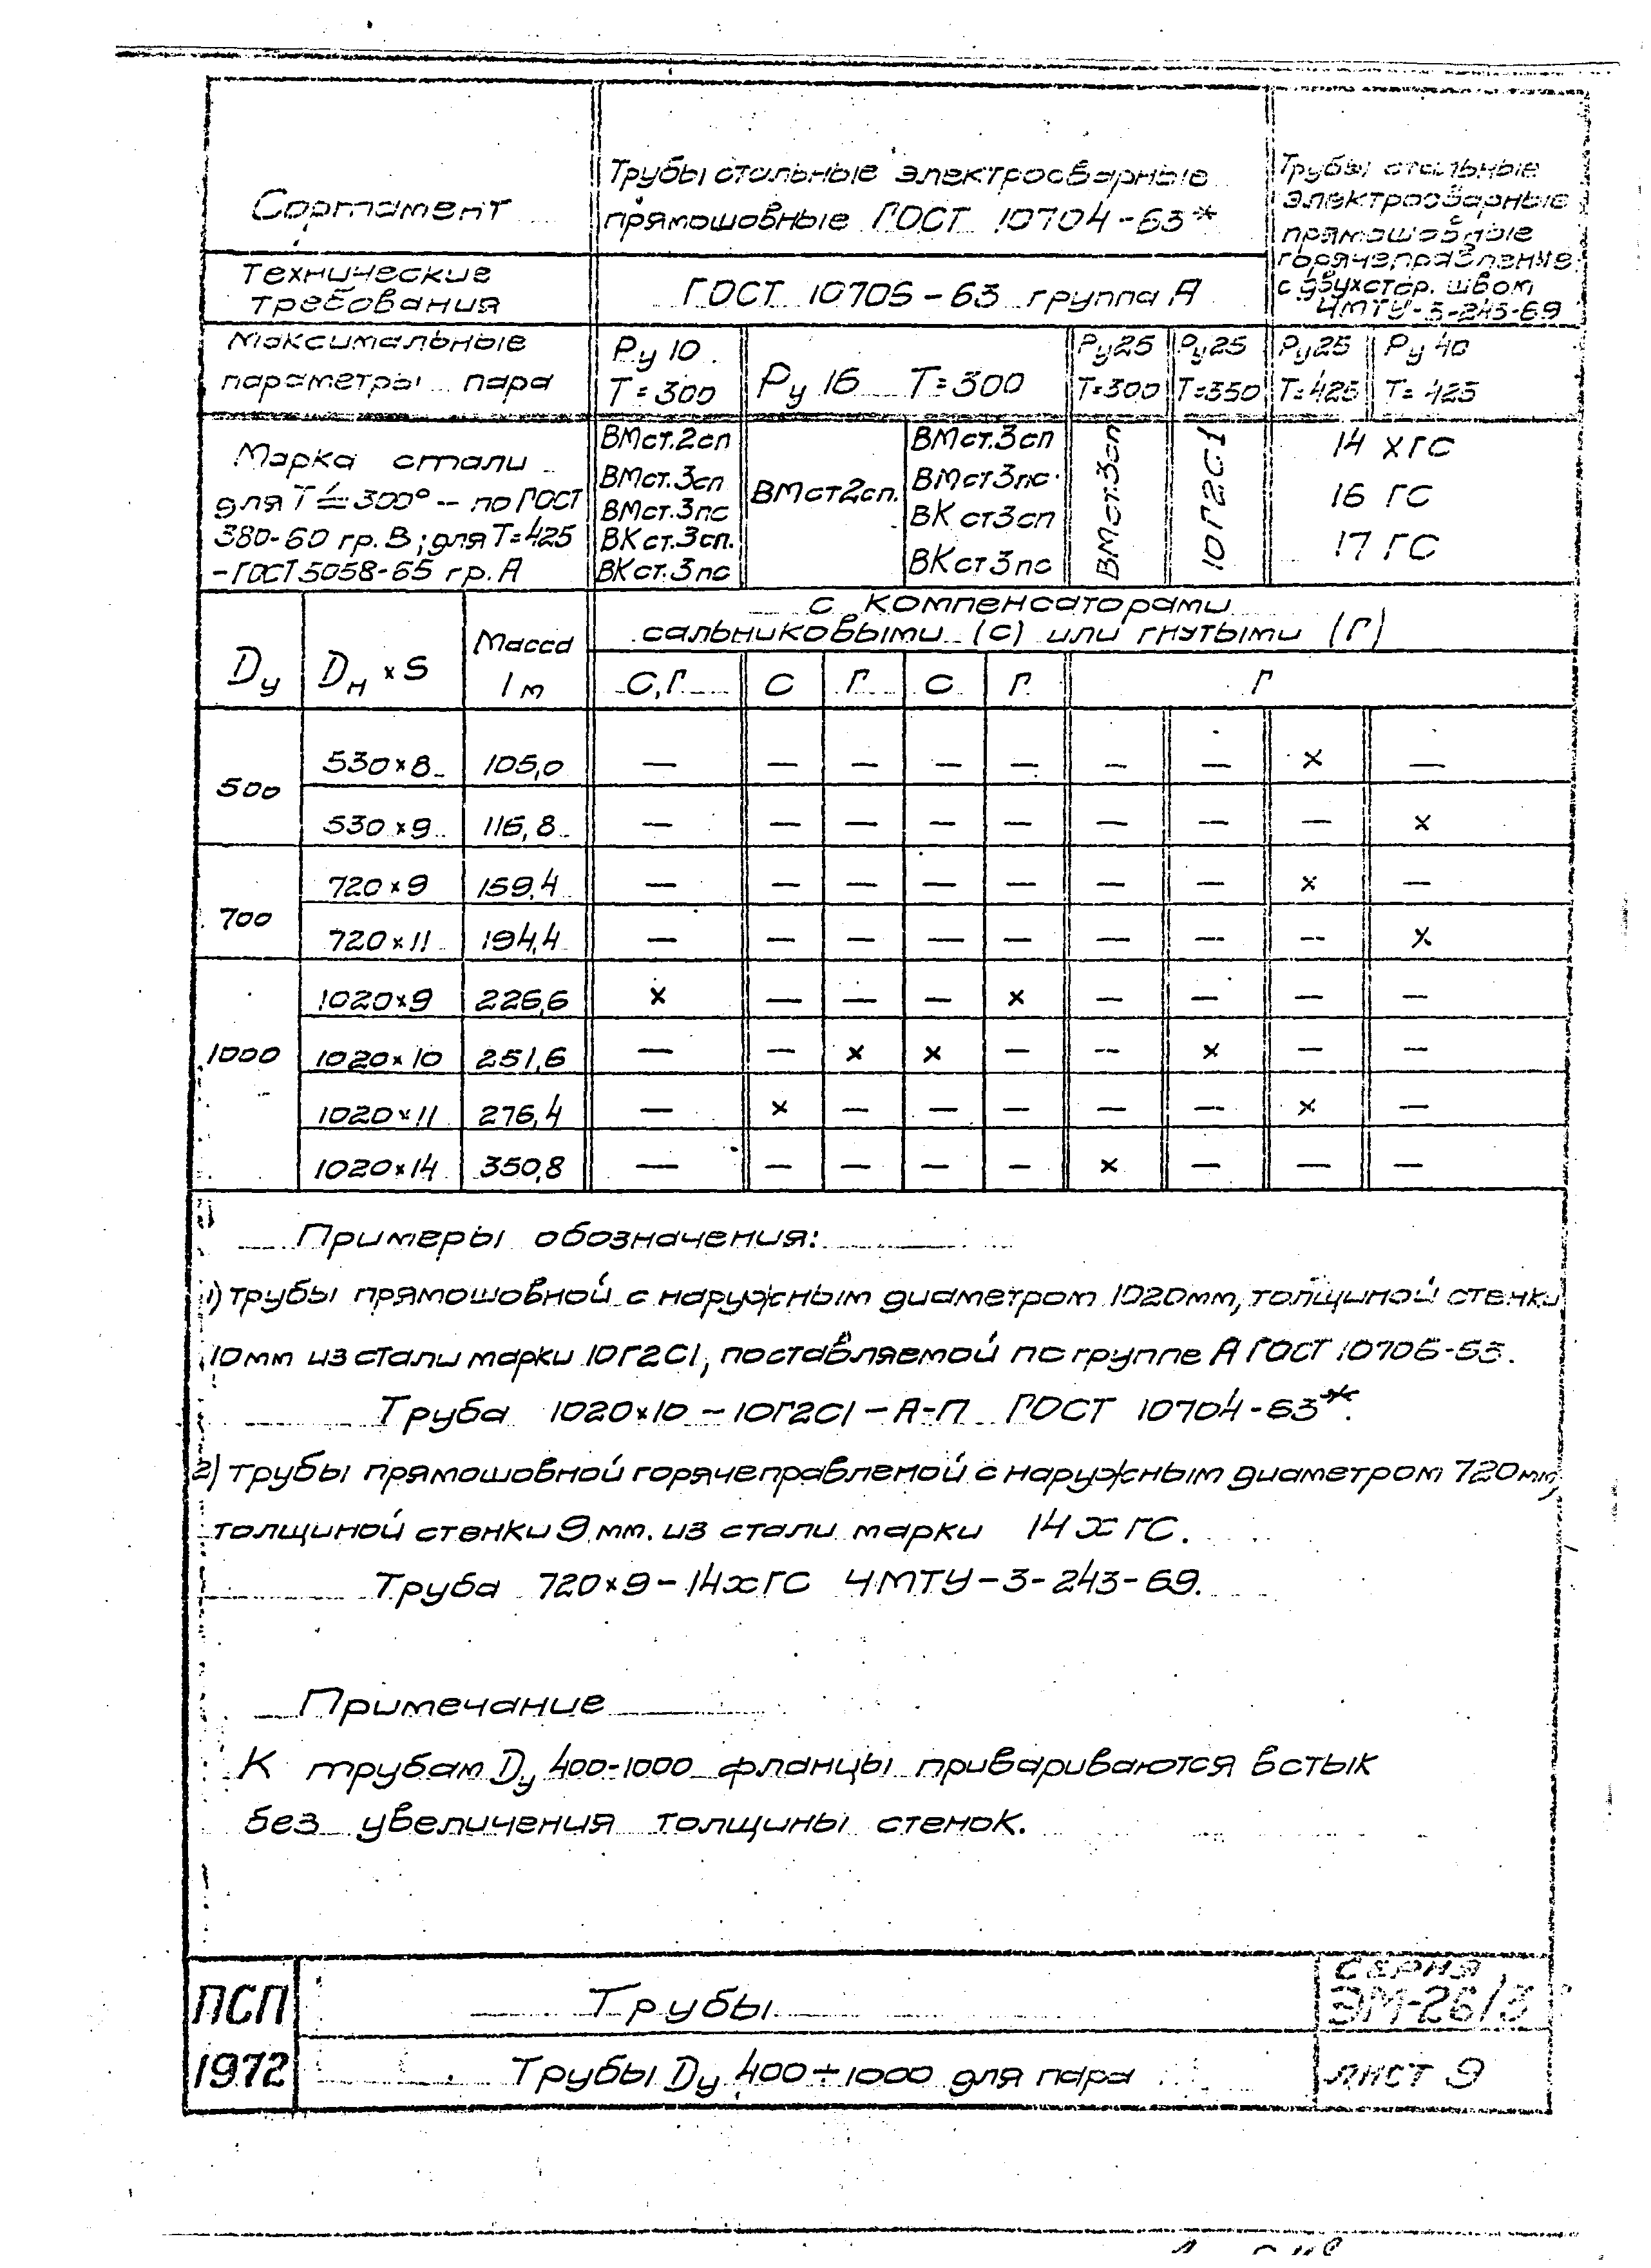 Сортамент
Трубы стальные электросварные
прямошовные ГОСТ 10704-63*
Трубы стальные
электросварные
прямошовные
горячеправленые
с двухстор. швом
ЧМТУ-3-243-69
Технические
требования
ГОСТ 10705-63 группа А
Максимальные
параметры пара
Ру 10
Т=300
Ру 16 Т=300
Ру25
Т=300
Ру25
Т=350
Ру25
Т=425
Ру 40
Т=425
Марка стали
для Т≤300° - по ГОСТ
380-60 гр. В; для Т=425
-ГОСТ 5058-65 гр. А
ВМст.2сп
ВМст.3сп
ВМст.3пс
ВКст.3сп.
ВКст.3пс
ВМст2сп.
ВМст.3сп
ВМст3пс
ВКст3сп
ВКст3пс
ВМст.3сп
10Г2С1
14 ХГС
16 ГС
17 ГС
Dу Dн × S Масса
1 м
с компенсаторами
сальниковыми (с) или гнутыми (Г)
С,Г С Г С Г Г
500
530×8 105,0 — — — — — — — × —
530×9 116,8 — — — — — — — — ×
700
720×9 159,4 — — — — — — — × —
720×11 194,4 — — — — — — — — ×
1000
1020×9 226,6 × — — — × — — — —
1020×10 251,6 — — × × — — × — —
1020×11 276,4 — × — — — — — × —
1020×14 350,8 — — — — — × — — —
Примеры обозначения:
1) трубы прямошовной с наружным диаметром 1020мм, толщиной стенки
10мм из стали марки 10Г2С1, поставляемой по группе А ГОСТ 10705-63.
Труба 1020×10-10Г2С1-А-П ГОСТ 10704-63*.
2) трубы прямошовной горячеправленой с наружным диаметром 720мм,
толщиной стенки 9 мм. из стали марки 14хГС.
Труба 720×9-14хГС ЧМТУ-3-243-69.
Примечание
К трубам Dу 400-1000 фланцы привариваются встык
без увеличения толщины стенок.
ПСП
1972
Трубы
Трубы Dу 400÷1000 для пара
СЕРИЯ
ЭМ-26/3
лист 9